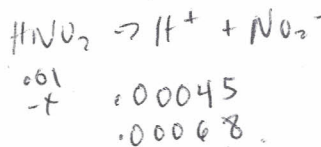 HNO₂ → H⁺ + NO₂⁻
.01
-x .00045
.00068